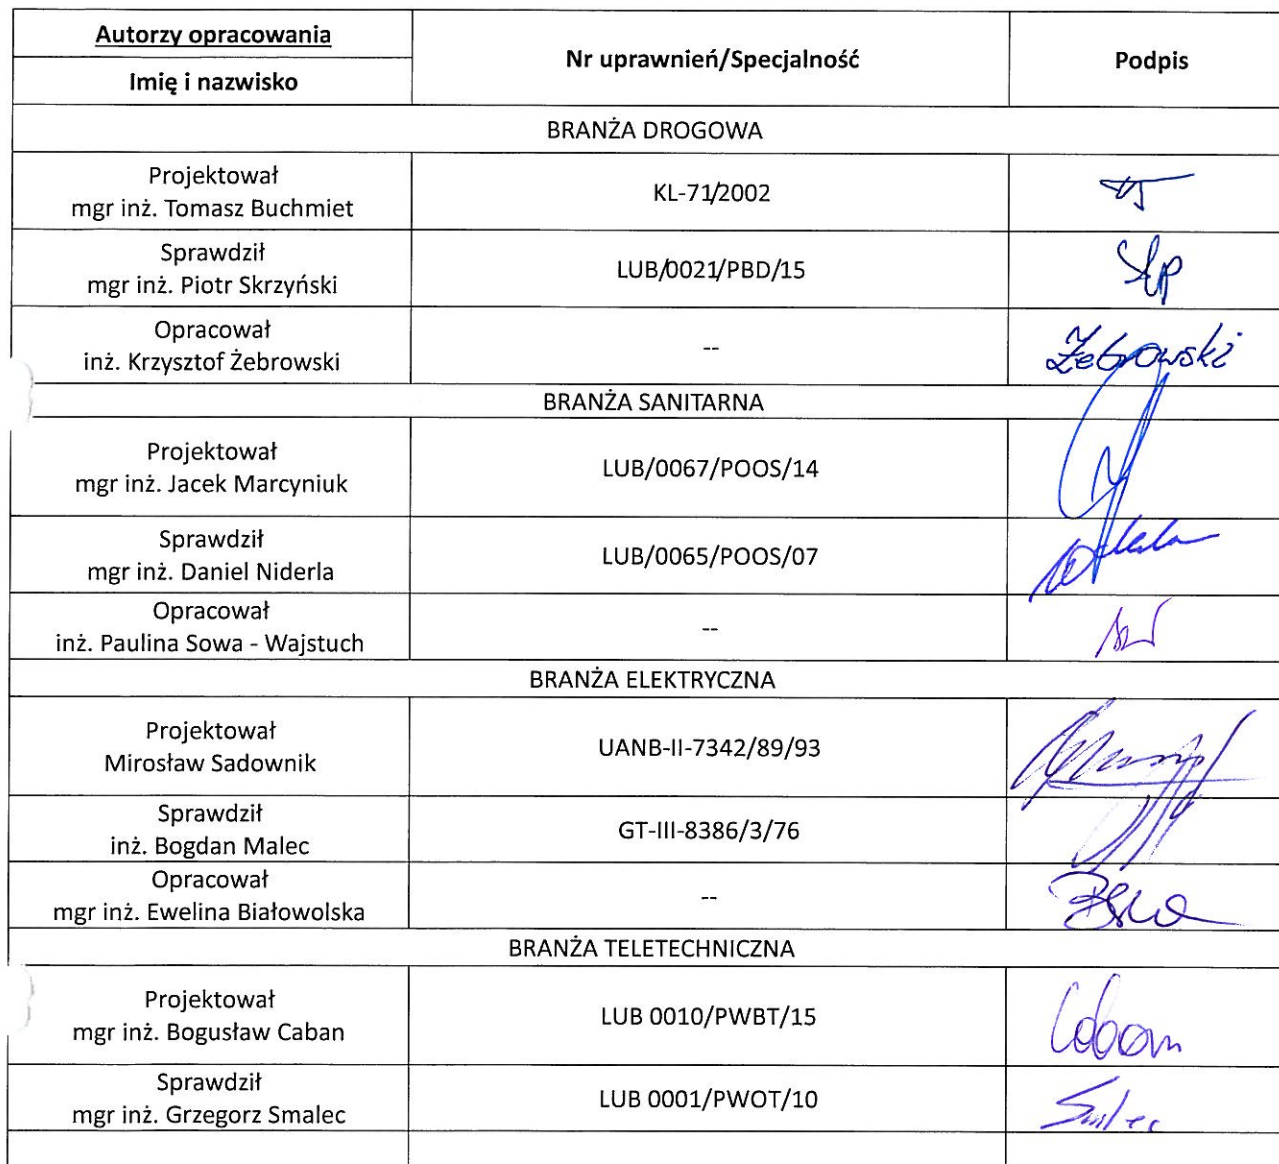 Autorzy opracowania
Imię i nazwisko
Nr uprawnień/Specjalność
Podpis
BRANŻA DROGOWA
Projektował
mgr inż. Tomasz Buchmiet
KL-71/2002
Sprawdził
mgr inż. Piotr Skrzyński
LUB/0021/PBD/15
Opracował
inż. Krzysztof Żebrowski
--
Żebrowski
BRANŻA SANITARNA
Projektował
mgr inż. Jacek Marcyniuk
LUB/0067/POOS/14
Sprawdził
mgr inż. Daniel Niderla
LUB/0065/POOS/07
Opracował
inż. Paulina Sowa - Wajstuch
--
BRANŻA ELEKTRYCZNA
Projektował
Mirosław Sadownik
UANB-II-7342/89/93
Sprawdził
inż. Bogdan Malec
GT-III-8386/3/76
Opracował
mgr inż. Ewelina Białowolska
--
BRANŻA TELETECHNICZNA
Projektował
mgr inż. Bogusław Caban
LUB 0010/PWBT/15
Caban
Sprawdził
mgr inż. Grzegorz Smalec
LUB 0001/PWOT/10
Smalec